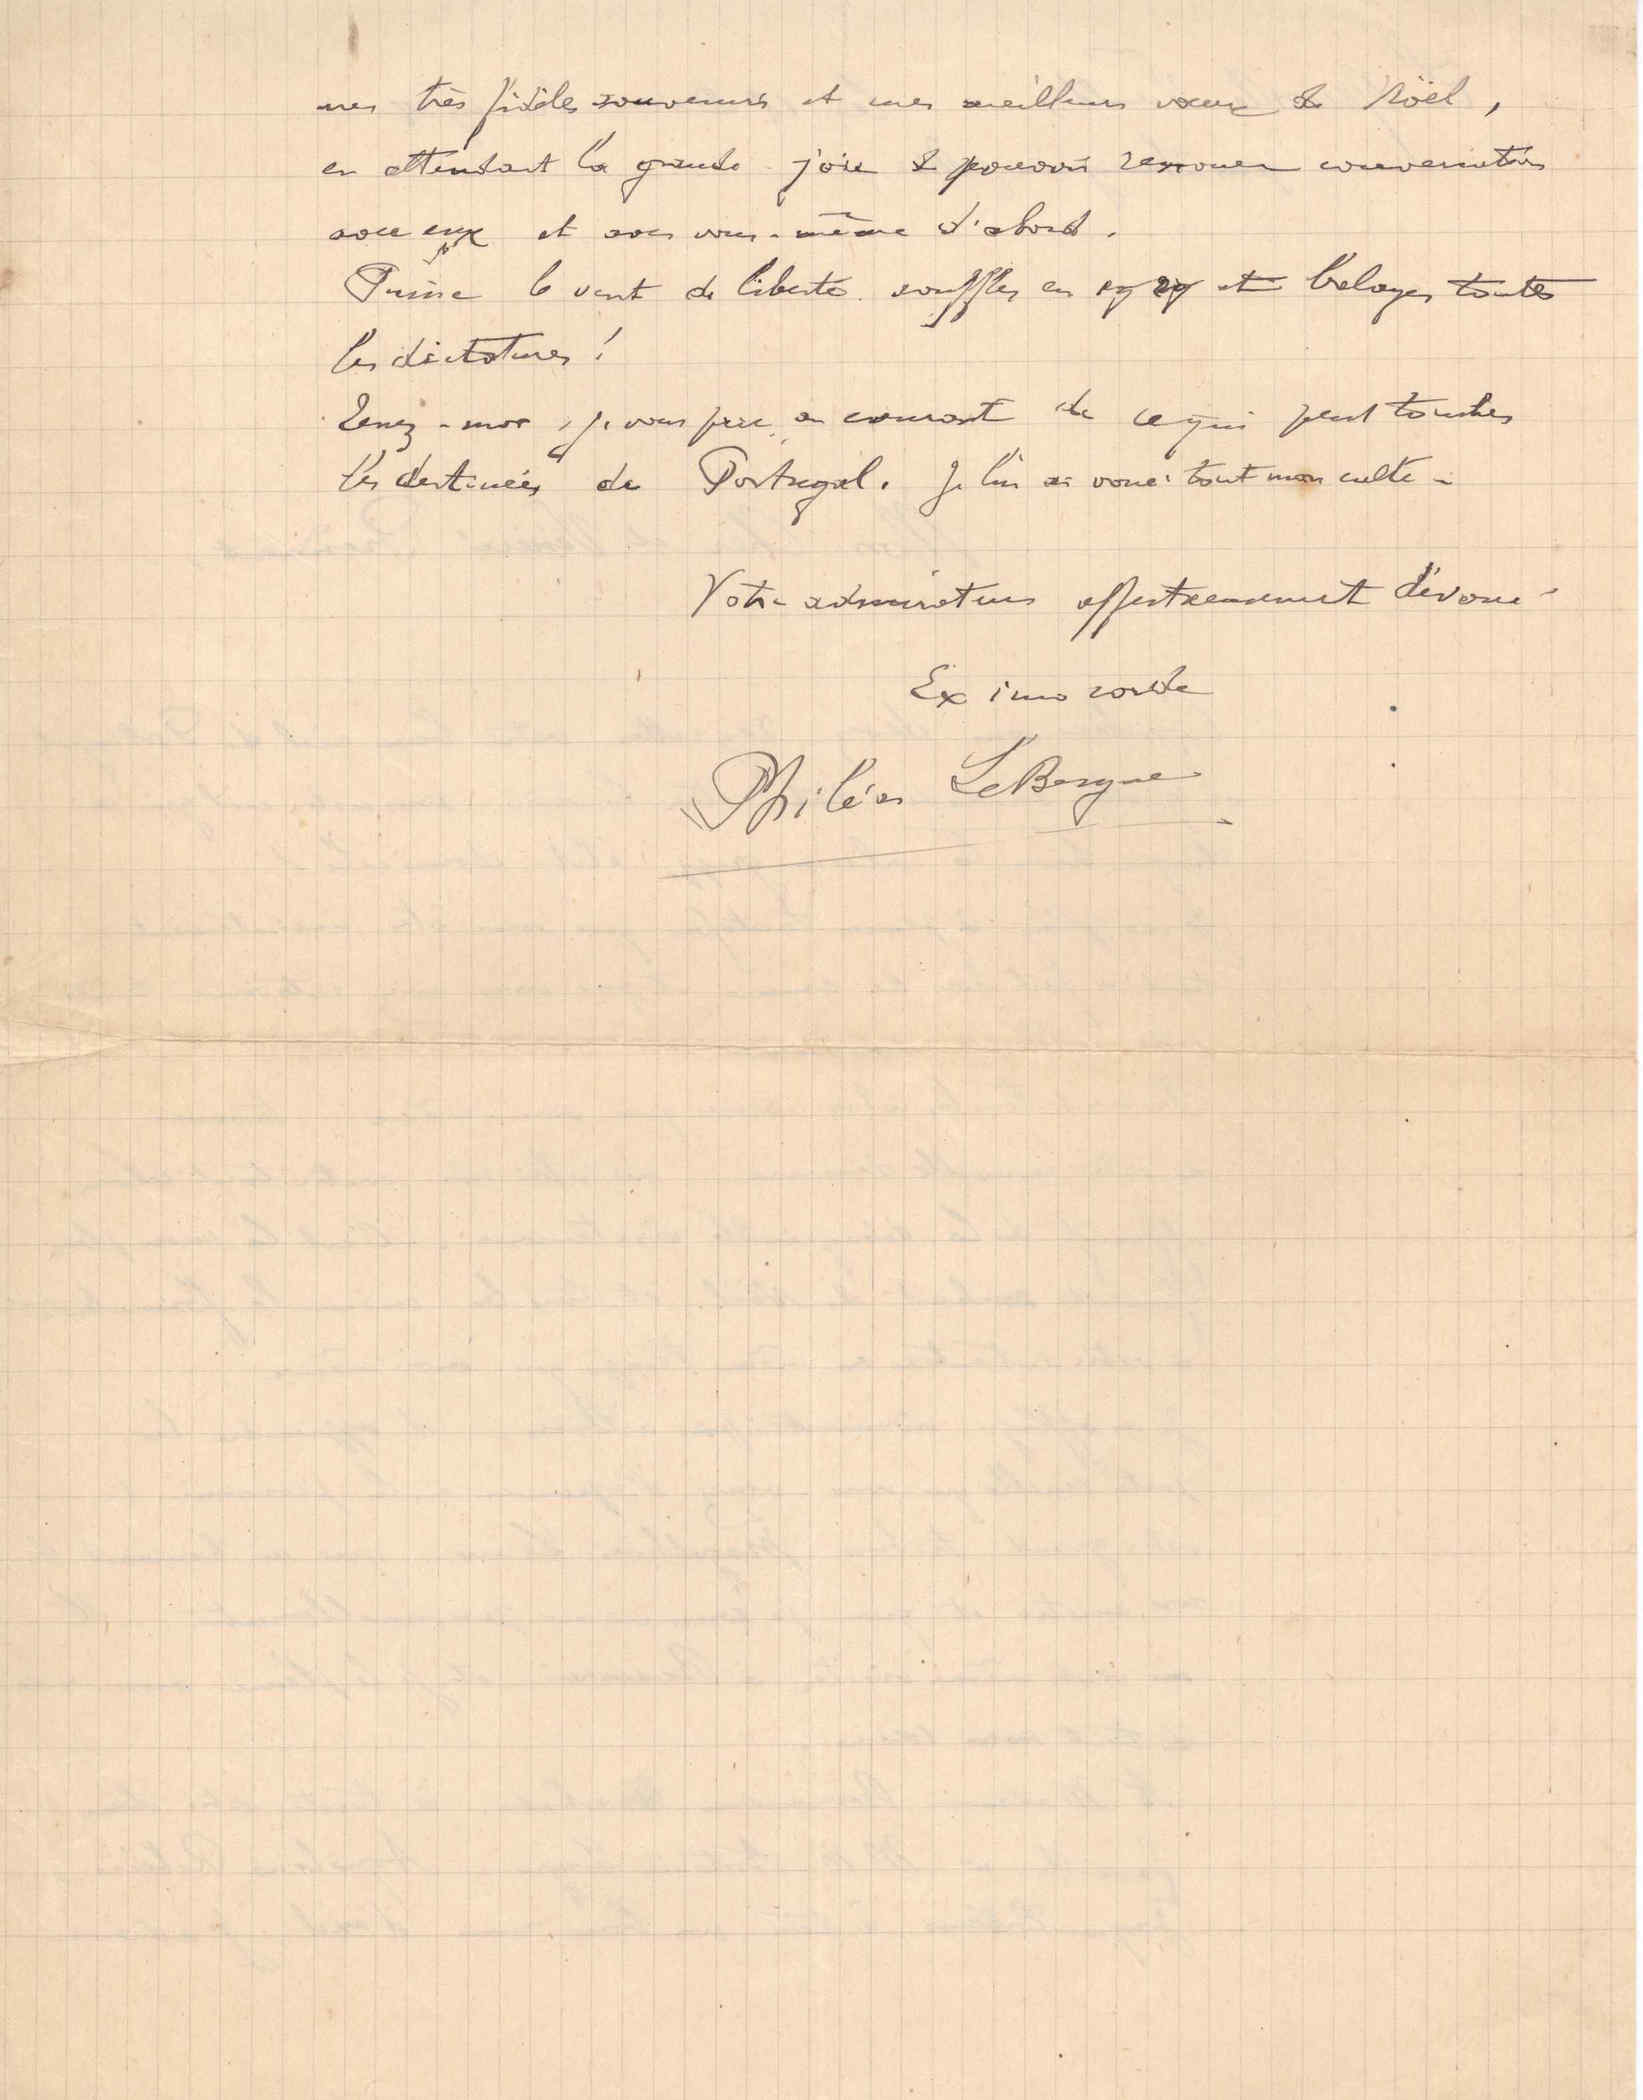 mes très fidèles souvenirs et mes meilleurs vœux de Noël,
en attendant la grande joie de pouvoir renouer conversation
avec eux et avec vous-même d'abord.
Puisse le vent de liberté souffler en 1929 et balayer toutes
les dictatures !
Tenez-moi, je vous prie, au courant de ce qui peut toucher
les destinées de Portugal. Je lui ai voué tout mon culte -
Votre admirateur affectueusement dévoué
Ex imo corde
Philéas LeBesgue